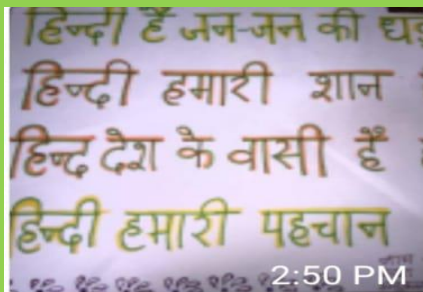 हिन्दी है जन-जन की
हिन्दी हमारी शान
हिन्द देश के वासी हैं
हिन्दी हमारी पहचान
2:50 PM